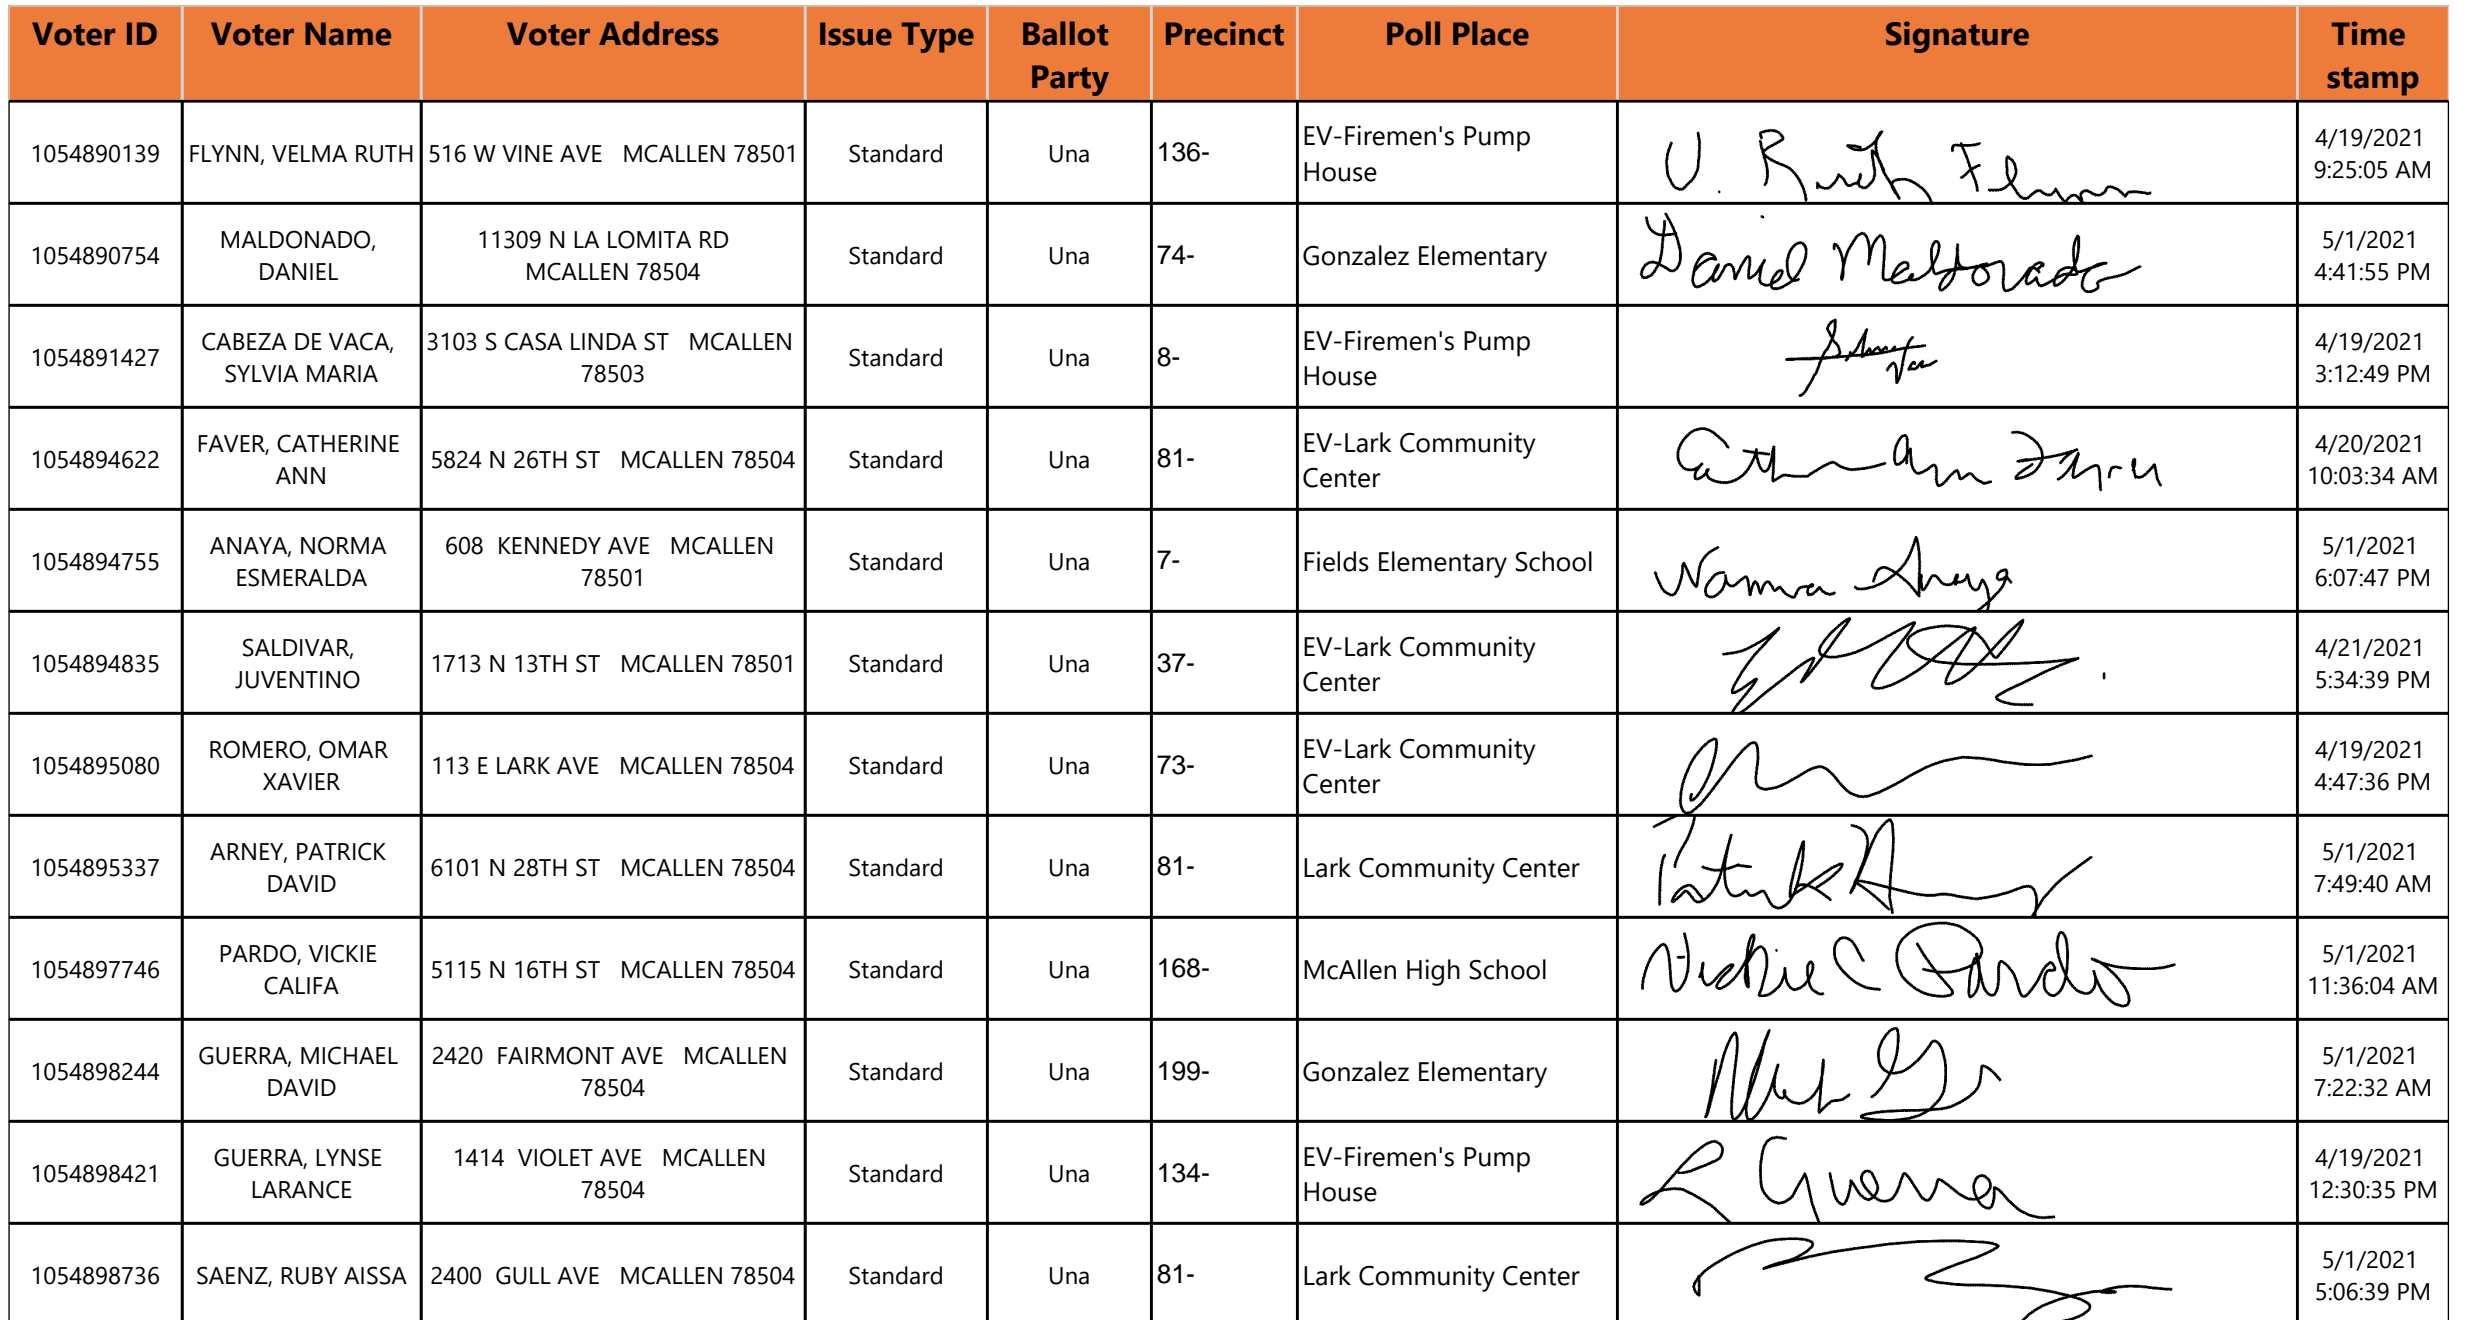 Voter ID Voter Name Voter Address Issue Type Ballot Party Precinct Poll Place Signature Time stamp
1054890139 FLYNN, VELMA RUTH 516 W VINE AVE MCALLEN 78501 Standard Una 136- EV-Firemen's Pump House V. Ruth Flynn 4/19/2021 9:25:05 AM
1054890754 MALDONADO, DANIEL 11309 N LA LOMITA RD MCALLEN 78504 Standard Una 74- Gonzalez Elementary Daniel Maldonado 5/1/2021 4:41:55 PM
1054891427 CABEZA DE VACA, SYLVIA MARIA 3103 S CASA LINDA ST MCALLEN 78503 Standard Una 8- EV-Firemen's Pump House 4/19/2021 3:12:49 PM
1054894622 FAVER, CATHERINE ANN 5824 N 26TH ST MCALLEN 78504 Standard Una 81- EV-Lark Community Center 4/20/2021 10:03:34 AM
1054894755 ANAYA, NORMA ESMERALDA 608 KENNEDY AVE MCALLEN 78501 Standard Una 7- Fields Elementary School Norma Anaya 5/1/2021 6:07:47 PM
1054894835 SALDIVAR, JUVENTINO 1713 N 13TH ST MCALLEN 78501 Standard Una 37- EV-Lark Community Center 4/21/2021 5:34:39 PM
1054895080 ROMERO, OMAR XAVIER 113 E LARK AVE MCALLEN 78504 Standard Una 73- EV-Lark Community Center 4/19/2021 4:47:36 PM
1054895337 ARNEY, PATRICK DAVID 6101 N 28TH ST MCALLEN 78504 Standard Una 81- Lark Community Center Patrick 5/1/2021 7:49:40 AM
1054897746 PARDO, VICKIE CALIFA 5115 N 16TH ST MCALLEN 78504 Standard Una 168- McAllen High School Vickie C Pardo 5/1/2021 11:36:04 AM
1054898244 GUERRA, MICHAEL DAVID 2420 FAIRMONT AVE MCALLEN 78504 Standard Una 199- Gonzalez Elementary 5/1/2021 7:22:32 AM
1054898421 GUERRA, LYNSE LARANCE 1414 VIOLET AVE MCALLEN 78504 Standard Una 134- EV-Firemen's Pump House L Guerra 4/19/2021 12:30:35 PM
1054898736 SAENZ, RUBY AISSA 2400 GULL AVE MCALLEN 78504 Standard Una 81- Lark Community Center 5/1/2021 5:06:39 PM